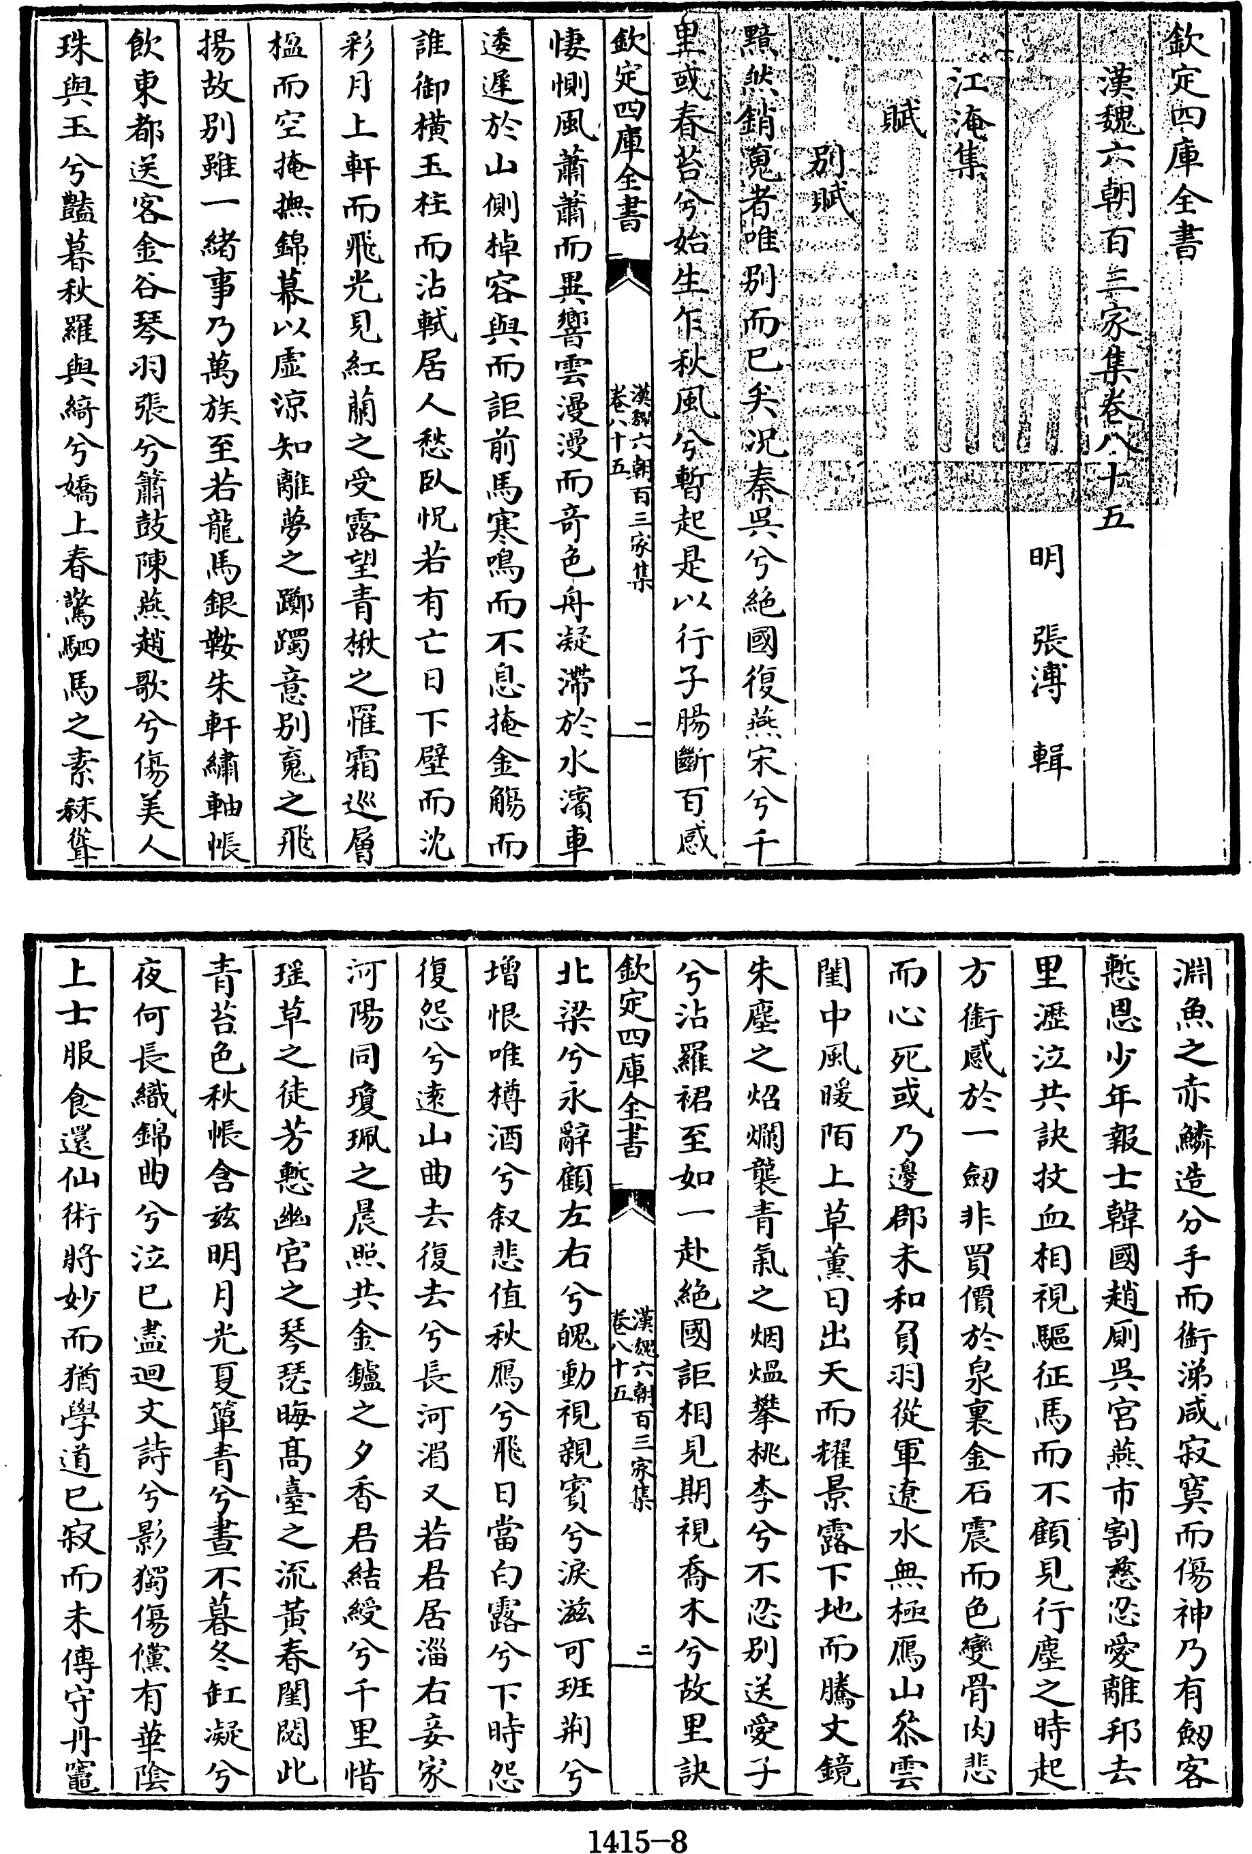 欽定四庫全書
漢魏六朝百三家集卷八十五
明 張溥 輯
江淹集
賦
別賦
黯然銷䰟者唯別而已矣况秦吳兮絶國復燕宋兮千
里或春苔兮始生乍秋風兮暫起是以行子腸斷百感
欽定四庫全書
漢魏六朝百三家集
卷八十五
一
悽惻風蕭蕭而異響雲漫漫而奇色舟凝滯於水濱車
逶遲於山側棹容與而詎前馬寒鳴而不息掩金觴而
誰御橫玉柱而沾軾居人愁臥怳若有亡日下壁而沈
彩月上軒而飛光見紅蘭之受露望青楸之罹霜巡層
楹而空掩撫錦幕以虛涼知離夢之躑躅意別䰟之飛
揚故別雖一緒事乃萬族至若龍馬銀鞍朱軒繡軸帳
飲東都送客金谷琴羽張兮簫鼓陳燕趙歌兮傷美人
珠與玉兮豔暮秋羅與綺兮嬌上春驚駟馬之素秣聳
淵魚之赤鱗造分手而銜涕咸寂寞而傷神乃有劒客
慙恩少年報士韓國趙厠吳宮燕市割慈忍愛離邦去
里瀝泣共訣抆血相視驅征馬而不顧見行塵之時起
方銜感於一劒非買價於泉裏金石震而色變骨肉悲
而心死或乃邊郡未和負羽從軍遼水無極鴈山叅雲
閨中風暖陌上草薰日出天而耀景露下地而騰文鏡
朱塵之炤爛襲青氣之烟熅攀桃李兮不忍別送愛子
兮沾羅裙至如一赴絶國詎相見期視喬木兮故里訣
欽定四庫全書
漢魏六朝百三家集
卷八十五
二
北梁兮永辭顧左右兮魄動視親賓兮淚滋可班荆兮
增恨唯樽酒兮叙悲值秋鴈兮飛日當白露兮下時怨
復怨兮遠山曲去復去兮長河湄又若君居淄右妾家
河陽同瓊珮之晨照共金鑪之夕香君結綬兮千里惜
瑶草之徒芳慙幽宮之琴瑟晦髙臺之流黃春閨閟此
青苔色秋帳含兹明月光夏簟青兮晝不暮冬缸凝兮
夜何長織錦曲兮泣已盡迴文詩兮影獨傷儻有華陰
上士服食還仙術將妙而猶學道已寂而未傳守丹竈
1415-8